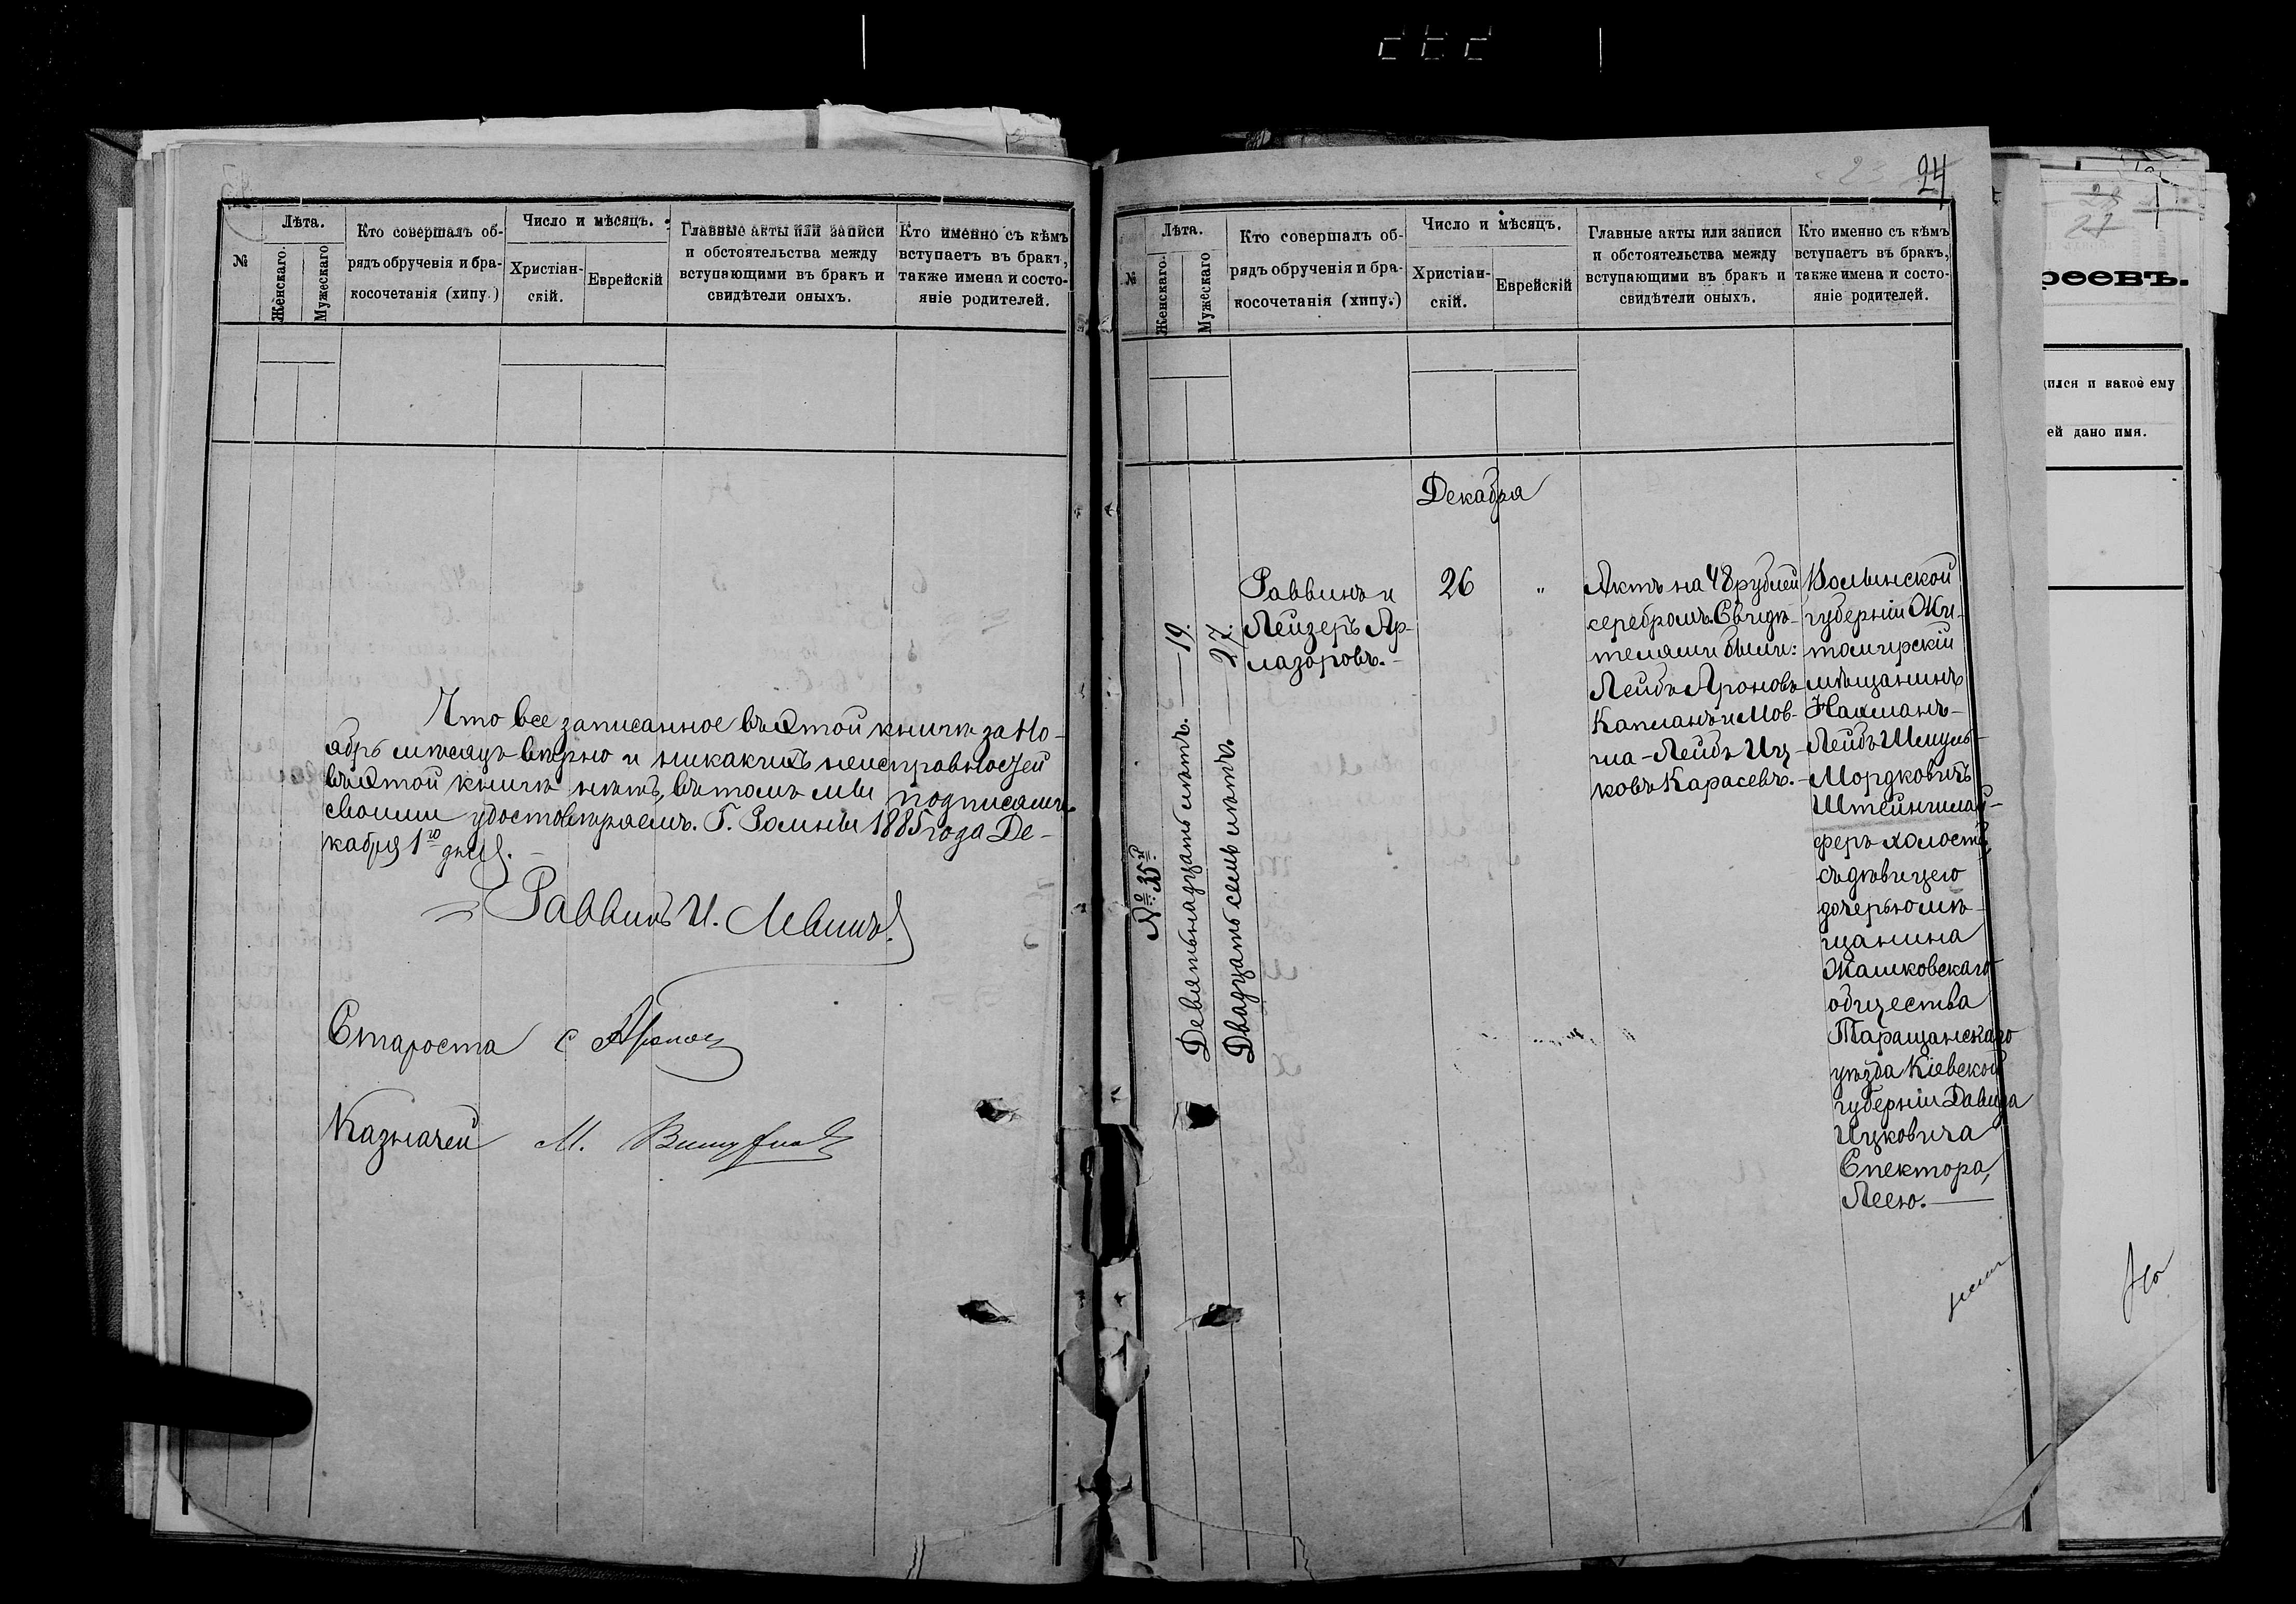 №
Лѣта.
Женскаго.
Мужескаго
Кто совершалъ об-
рядъ обрученія и бра-
косочетанія (хипу.)
Число и мѣсяцъ.
Христіан-
скій.
Еврейскій
Главные акты или записи
и обстоятельства между
вступающими въ бракъ и
свидѣтели оныхъ.
Кто именно съ кѣмъ
вступаетъ въ бракъ,
также имена и состо-
яніе родителей.
Что все записанное въ этой книгѣ за Но-
ябрь мѣсяцъ вѣрно и никакихъ неисправностей
въ этой книгѣ нѣтъ, въ томъ мы подписями
своими удостовѣряемъ. Г. Ромны 1885 года Де-
кабря 1го дня.
Раввинъ И. Левинъ
Староста
Казначей М.
24
№
Лѣта.
Женскаго.
Мужескаго
Кто совершалъ об-
рядъ обрученія и бра-
косочетанія (хипу.)
Число и мѣсяцъ.
Христіан-
скій.
Еврейскій
Главные акты или записи
и обстоятельства между
вступающими въ бракъ и
свидѣтели оныхъ.
Кто именно съ кѣмъ
вступаетъ въ бракъ,
также имена и состо-
яніе родителей.
Декабря
№ 35й
Девятьнадцать лѣтъ. — 19.
Двадцать семь лѣтъ. — 27.
Раввинъ и
Лейзеръ Ар-
лазоровъ. -
26
"
Актъ на 48 рублей
серебромъ. Свидѣ-
телями были:
Лейбъ Ароновъ
Капланъ и Мов-
ша-Лейбъ Иц-
ковъ Карасевъ. -
Волынской
губерніи Жи-
томирскій
мѣщанинъ
Нахманъ-
Лейбъ Шмуль-
Мордковичъ
Штейншлей-
феръ холостъ,
съ дѣвицею
дочерью мѣ-
щанина
Жашковскаго
общества
Таращанскаго
уѣзда Кіевской
губерніи Давида
Ицковича
Спектора,
Леею. —
реевъ.
дился и какое ему
ей дано имя.